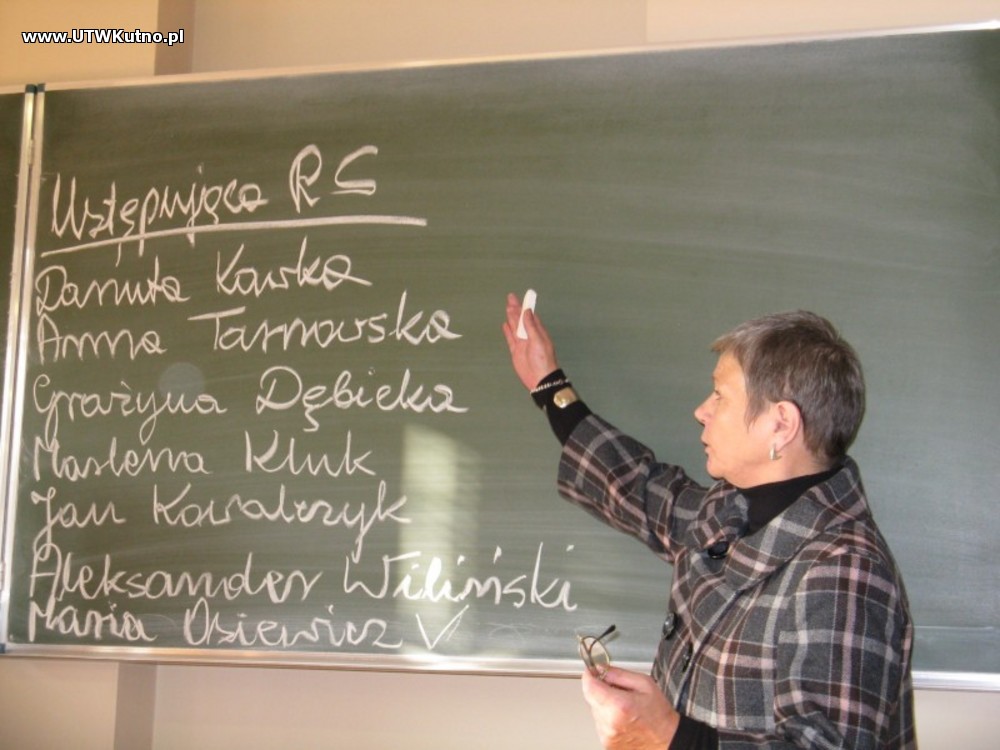 www.UTWKutno.pl
Ustępująca RS
Danuta Kawka
Anna Tarnowska
Grażyna Dębicka
Marlena Kluk
Jan Kowalczyk
Aleksander Wiliński
Maria Osiewicz V